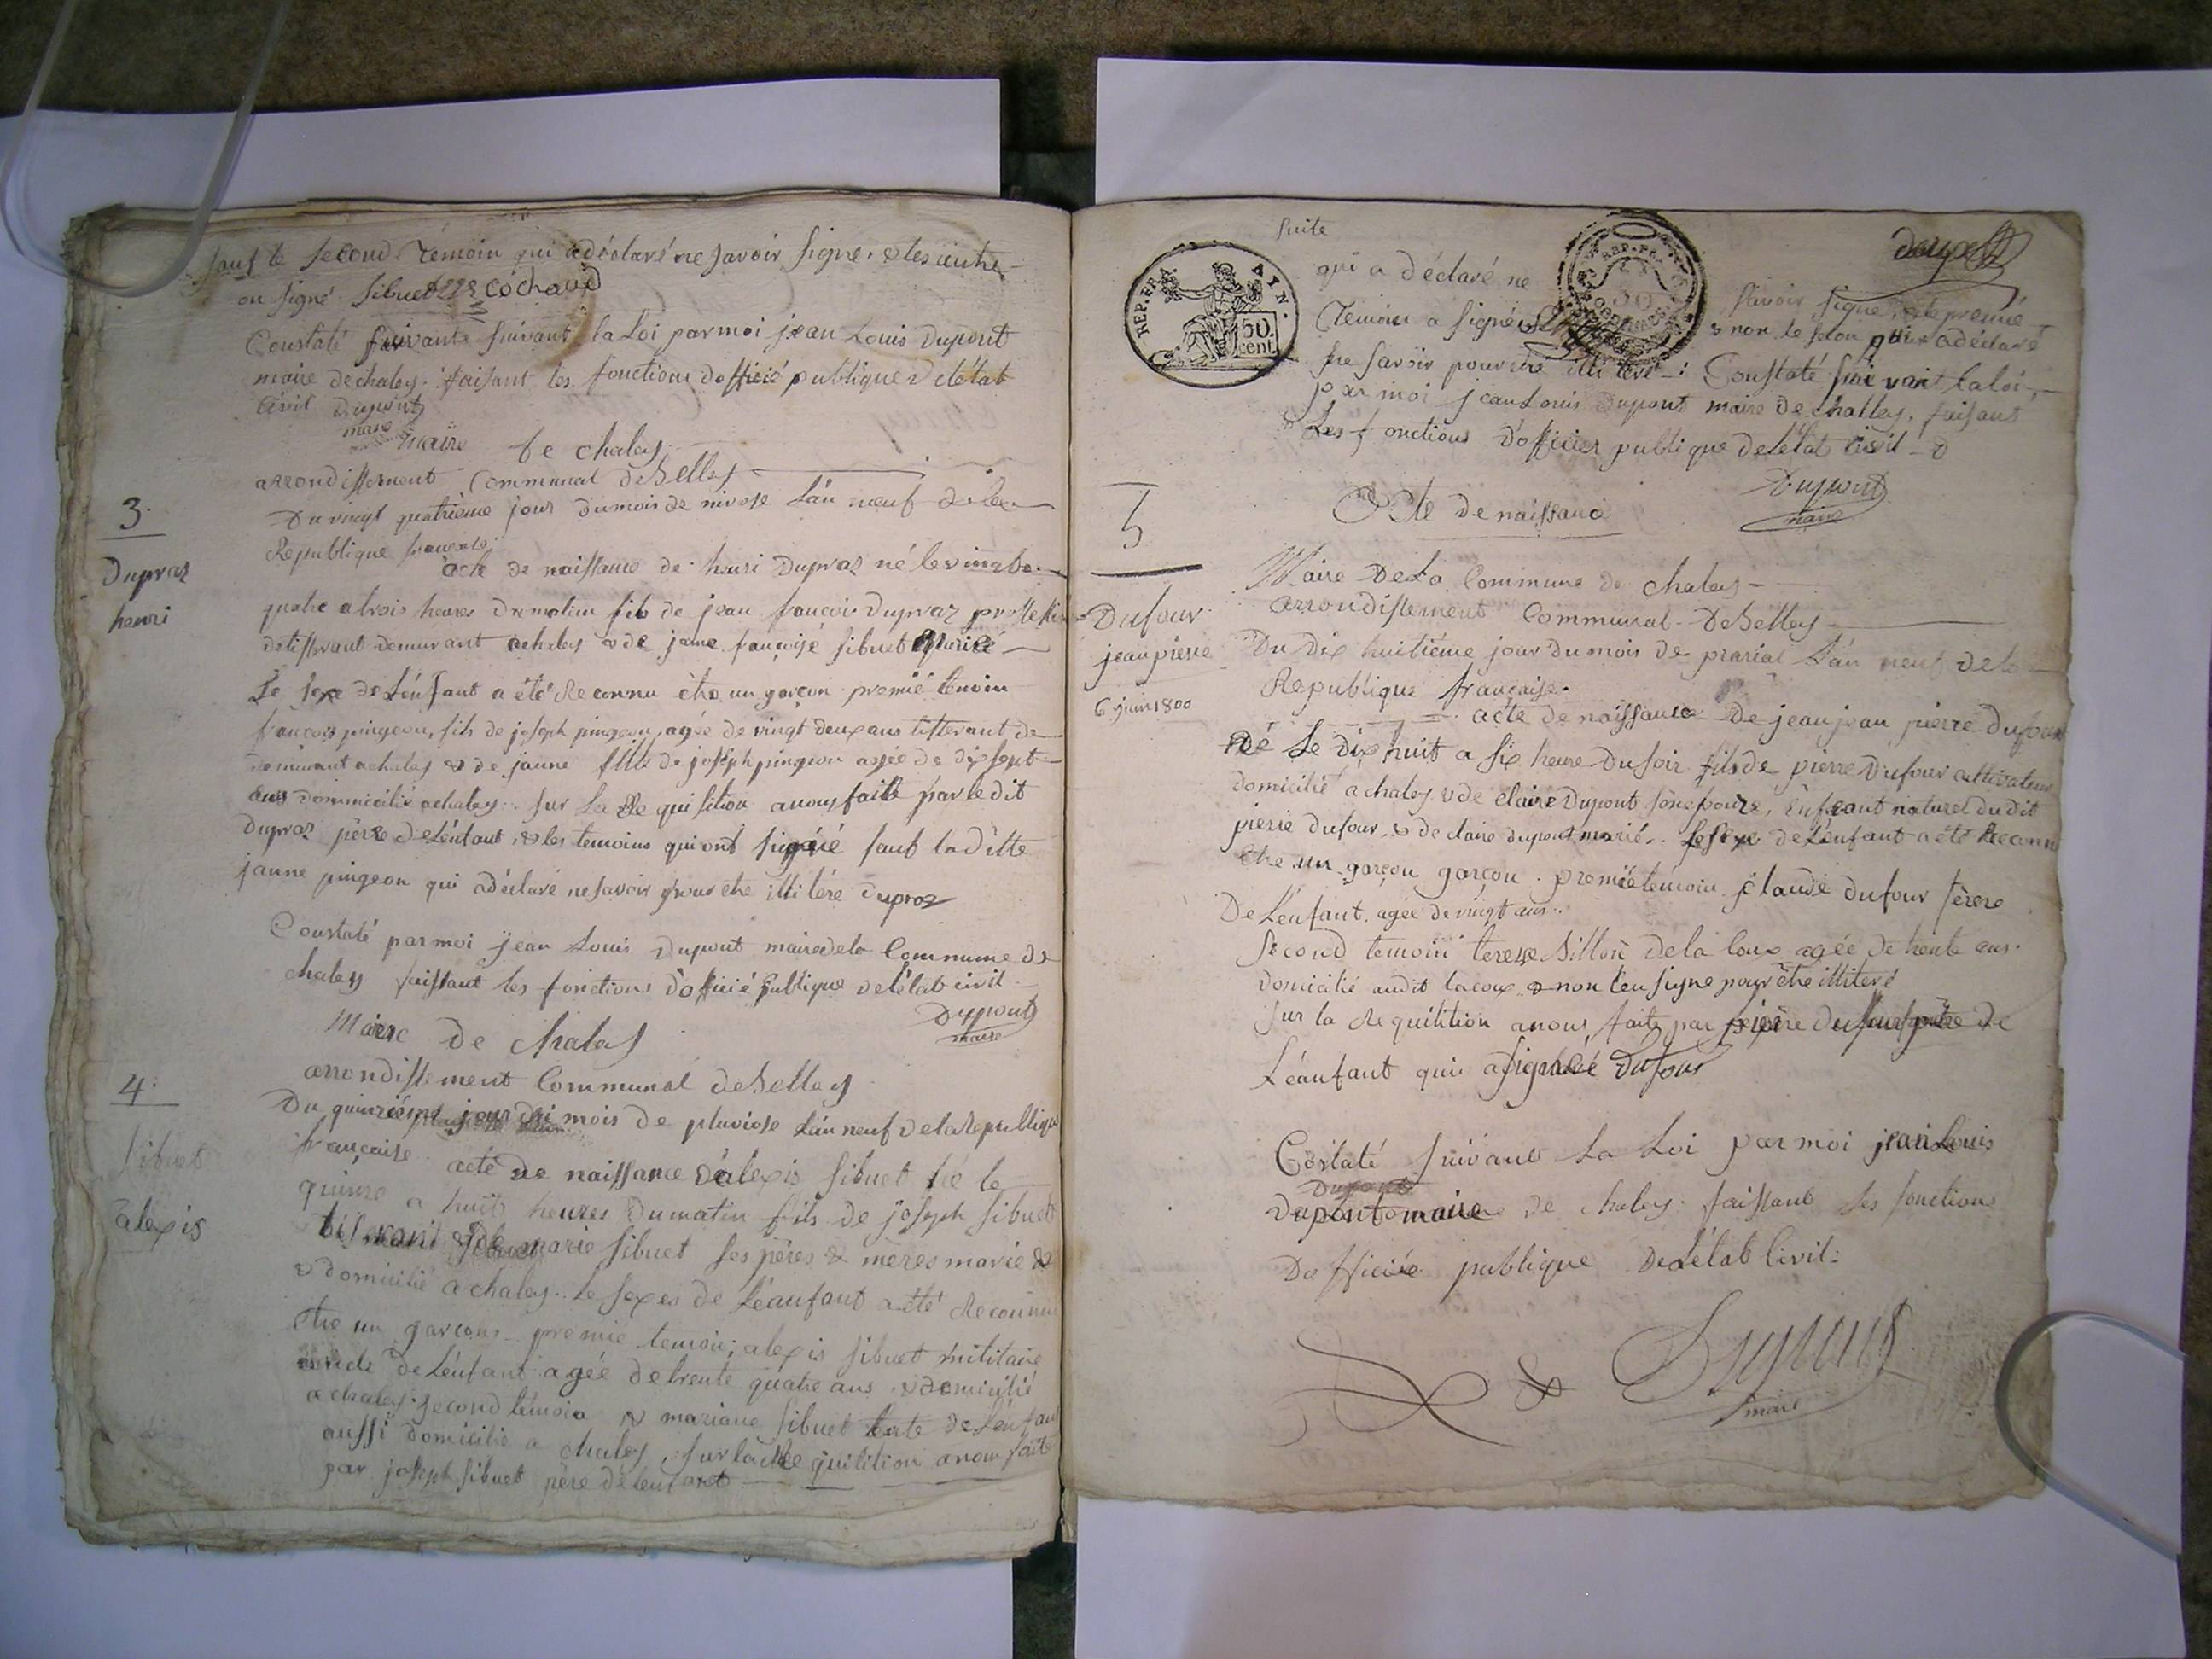 sauf le second témoin qui a déclaré ne savoir signé, & les autre
on signé Sibuet cochaud
Constaté suivant suivant la Loi par moi jean Louis Dupont
maire de chaley faisant les fonctions d'officié publique de létat
Civil Dupont
maire
Maire de chaley
arrondissement Communal de Belley
Du vingt quatrième jour du mois de nivose L'an neuf de la
République française
3.
Dupraz
henri
acte de naissance de henri Dupraz né le vingt
quatre a trois heures du matin fils de jean françois Dupraz
de tisserant demurant a chaley & de jane françoise Sibuet marié
Le sexe de Lénfant a été Reconnu être un garçon premié temoin
françois pingeon, fils de joseph pingeon, agée de vingt deux ans tisserant de
demurant a chaley & de janne fille de joseph pingeon agée de dix sept
ans dommicilié a chaley. sur la Réquisition a nous faitte par le dit
Dupraz père de Lénfant, & les temoins qui ont signé sauf la ditte
janne pingeon qui a déclaré ne savoir pour etre illitéré Dupraz
Constaté par moi jean Louis Dupont maire de la Commune de
chaley faissant les fonctions d'officié publique de létat civil
Dupont
maire
Maire de chaley
arrondissement Communal de Belley
4.
Sibuet
alexis
Du quinzième jour du mois de pluviose L'an neuf de la République
française acte de naissance d'alexis Sibuet né le
quinze a huit heures du matin fils de joseph Sibuet
tisserant & de marie Sibuet ses pères & mères marié &
& domicilié a chaley. le sexes de Léanfant a été Reconnu
être un garcons premié temoin; alexis Sibuet militaire
oncle de Lénfant agée de trente quatre ans & domicilié
a chaley. second témoin & mariane Sibuet tante de Lénfant
aussi domicilié a chaley, sur la Réquisition a nous faitte
par joseph Sibuet père de lenfant
Suite
REP. FRA. AYN.
50 cent.
qui a déclaré ne savoir signé & le premié
Témoin a signé & non le second qui a déclaré
ne savoir pour être illitéré : Constaté suivant la loi,
par moi jean Louis Dupont maire de challey, faisant
Les fonctions d'officier publique de létat civil
Dupont
maire
5
Dufour
jean pierre
6 juin 1800
Acte de naissance
Maire De La Commune de chaley
arrondissement Communal De Belley
Du Dix huitiéme jour du mois de prarial L'an neuf de la
Republique française.
acte de naissance De jean jean pierre Dufour
né Le Dix huit a six heure Du soir fils de pierre Dufour cultivateur
domicilié a chaley & de claire Dupont son épouze, Enfeant naturel du dit
pierre dufour & de claire dupont marié.. Le sexe de Lénfant a été Reconnu
être un garçon garçon. premié témoin claude dufour frère
De Lénfant. agée de vingt ans.
Second temoin terese Billon de la loux agée de trente ans.
domicilié au dit lacoux & non l'eu signe pour être illiteré
sur la Réquitition a nous faite par pierre dufour père de
Léanfant qui a signé Dufour
Costaté suivant La Loi par moi jean Louis
Dupont maire de chaley. faissant les fonctions
Dofficiée publique De Létat Civil:
Dupont
maire